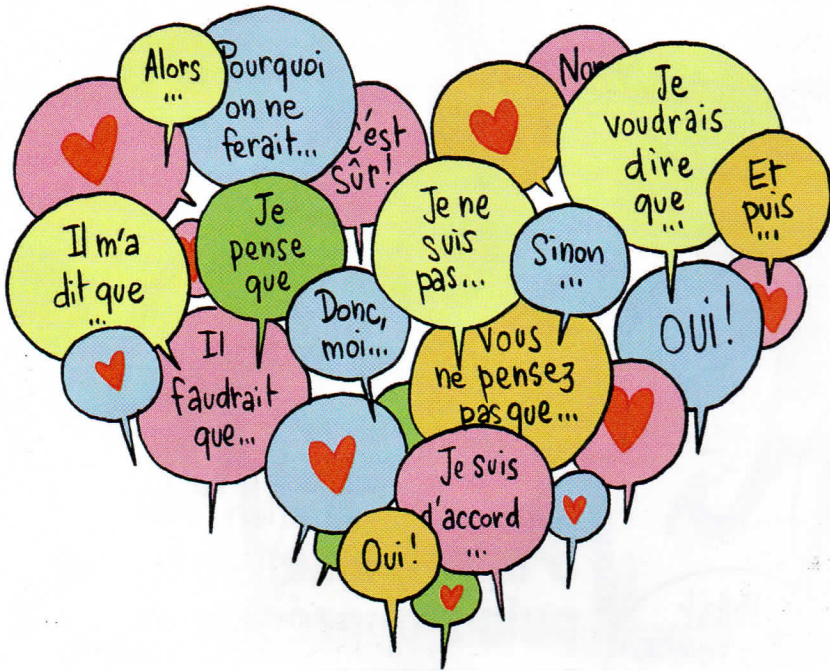 Alors
...
Pourquoi
on ne
ferait...
C'est
sûr!
Non
Je
voudrais
dire
que...
Et
puis
...
Il m'a
dit que
...
Je
pense
que
Je ne
suis
pas...
Sinon
...
Donc,
moi...
OUi!
Il
faudrait
que...
Vous
ne pensez
pas que...
Je suis
d'accord
...
Oui!